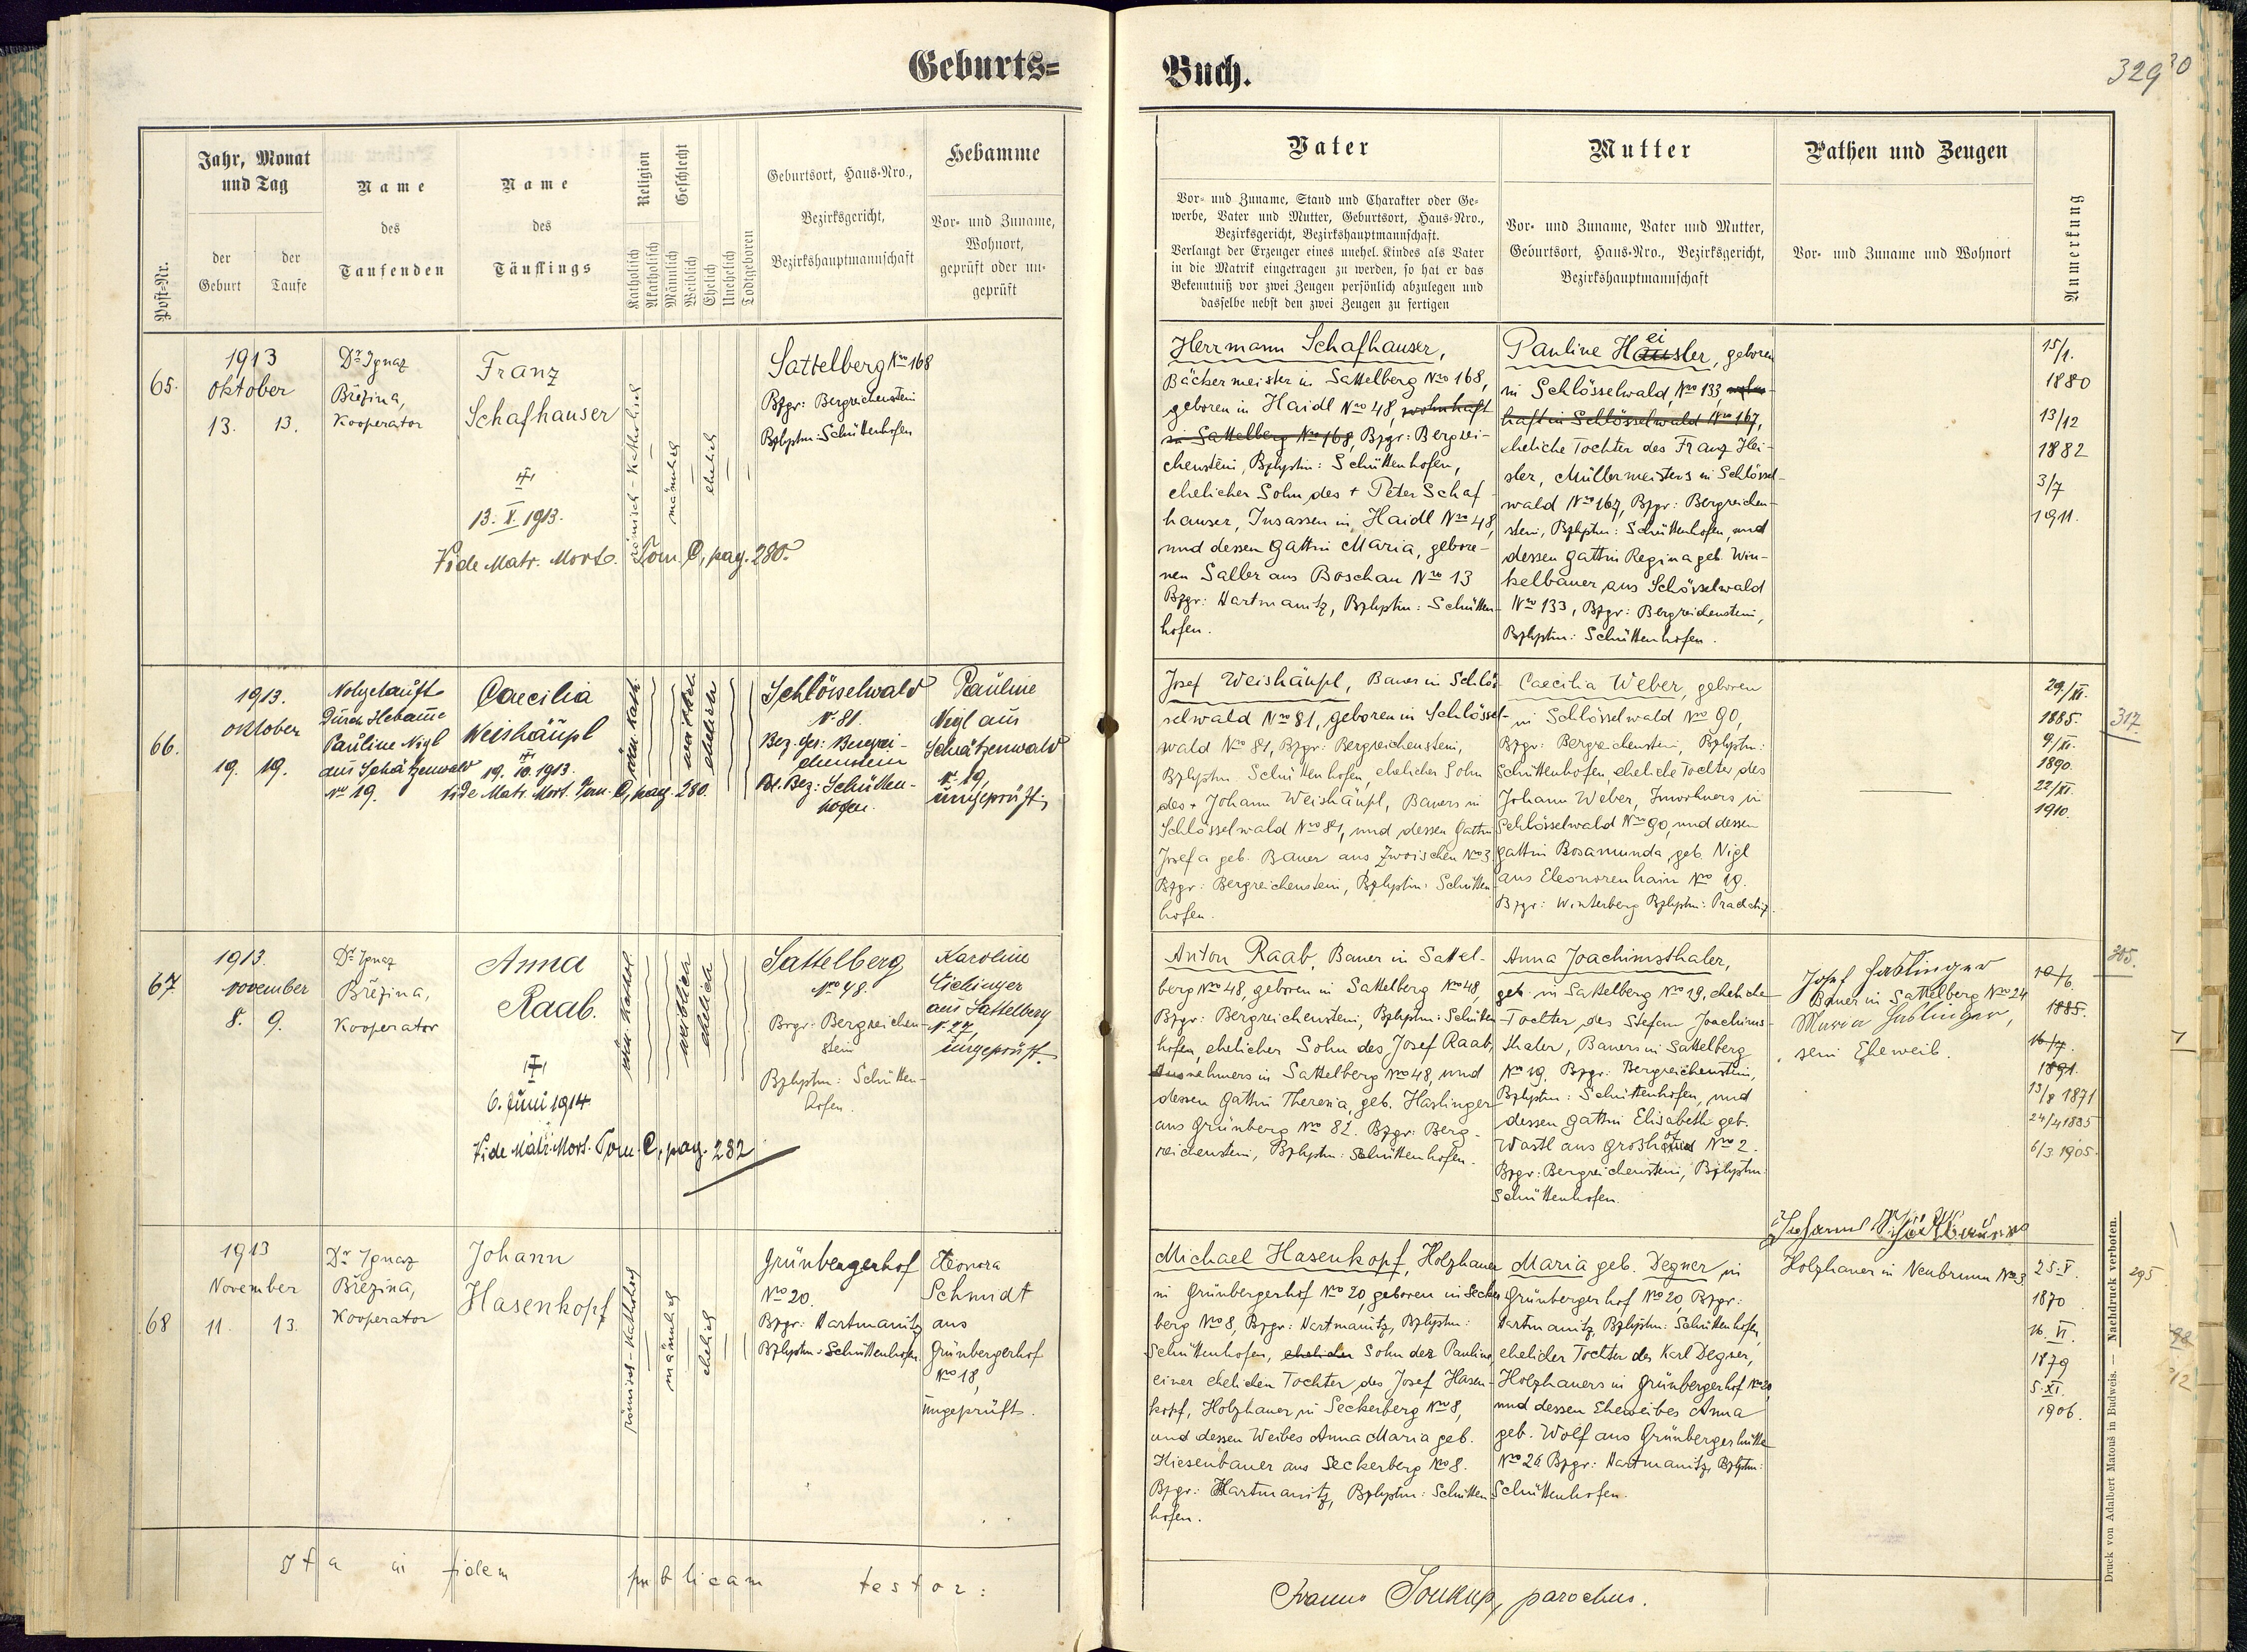 Geburts=
Post-Nr.
Jahr, Monat
und Tag
der
Geburt
der
Taufe
Name
des
Taufenden
Name
des
Täuflings
Religion
Katholisch
Akatholisch
Geschlecht
Männlich
Weiblich
Ehelich
Unehelich
Todtgeboren
Geburtsort, Haus-Nro.,
Bezirksgericht,
Bezirkshauptmannschaft
Hebamme
Vor- und Zuname,
Wohnort,
geprüft oder un-
geprüft
65.
1913
Oktober
13. 13.
Dr. Ignaz
Březina,
Kooperator
Franz
Schafhauser
13. X. 1913.
Vide Matr. Mort. Tom. C, pag. 280.
römisch-katholisch
männlich
ehelich
Sattelberg Nro 168
Bzgr: Bergreichenstein
Bzhptm: Schüttenhofen
66.
1913.
Oktober
19. 19.
Notgetauft
durch Hebamme
Pauline Nigl
aus Schätzenwald
No 19.
Caecilia
Weishäupl
19. 10. 1913.
Vide Matr. Mort. Tom. C, pag. 280.
röm. kath.
weiblich
ehelich
Schlösselwald
No 81.
Bez. Ger: Bergrei-
chenstein
Pol. Bez: Schütten-
hofen.
Pauline
Nigl aus
Schätzenwald
No 19,
ungeprüft
67
1913.
November
8. 9.
Dr. Ignaz
Březina,
Kooperator
Anna
Raab.
6. Juni 1914
Vide Matr. Mort. Tom. C, pag. 282
röm. kathol.
weiblich
ehelich
Sattelberg
Nro 48.
Bzgr: Bergreichen-
stein
Bzhptm: Schütten-
hofen.
Karoline
Eichinger
aus Sattelberg
N. 27,
ungeprüft
68
1913
November
11. 13.
Dr. Ignaz
Březina,
Kooperator
Johann
Hasenkopf
römisch-katholisch
männlich
ehelich
Grünbergerhof
No 20.
Bzgr: Hartmanitz
Bzhptm: Schüttenhofen
Eleonora
Schmidt
aus
Grünbergerhof
Nro 18,
ungeprüft.
Ita in fidem publicam testor:
Buch.
329
30
Vater
Vor- und Zuname, Stand und Charakter oder Ge-
werbe, Vater und Mutter, Geburtsort, Haus-Nro.,
Bezirksgericht, Bezirkshauptmannschaft.
Verlangt der Erzeuger eines unehel. Kindes als Vater
in die Matrik eingetragen zu werden, so hat er das
Bekenntniß vor zwei Zeugen persönlich abzulegen und
dasselbe nebst den zwei Zeugen zu fertigen
Mutter
Vor- und Zuname, Vater und Mutter,
Geburtsort, Haus-Nro., Bezirksgericht,
Bezirkshauptmannschaft
Pathen und Zeugen
Vor- und Zuname und Wohnort
Anmerkung
Herrmann Schafhauser,
Bäckermeister in Sattelberg Nro 168,
geboren in Haidl Nro 48, wohnhaft
in Sattelberg Nro 168, Bzgr: Bergrei-
chenstein, Bzhptm: Schüttenhofen,
ehelicher Sohn des + Peter Schaf-
hauser, Insassen in Haidl Nro 48,
und dessen Gattin Maria, gebore-
nen Saller aus Boschau Nro 13
Bzgr: Hartmanitz, Bzhptm: Schütten-
hofen.
Pauline Häusler, geboren
ei
in Schlösselwald, Nro 133, wohn-
haft in Schlösselwald Nro 167,
eheliche Tochter des Franz Hei-
sler, Müllermeisters in Schlössel-
wald Nro 167, Bzgr: Bergreichen-
stein, Bzhptm: Schüttenhofen, und
dessen Gattin Regina geb. Win-
kelbauer aus Schösselwald
Nro 133, Bzgr: Bergreichenstein,
Bzhptm: Schüttenhofen.
15/1.
1880
13/12
1882
3/7
1911.
Josef Weishäupl, Bauer in Schlös-
selwald Nro 81, geboren in Schlössel-
wald Nro 81, Bzgr: Bergreichenstein,
Bzhptm Schüttenhofen, ehelicher Sohn
des + Johann Weishäupl, Bauers in
Schlösselwald Nro 81, und dessen Gattin
Josefa geb. Bauer aus Zwoischen No 3
Bzgr: Bergreichenstein, Bzhptm: Schütten-
hofen.
Caecilia Weber, geboren
in Schlösselwald Nro 90,
Bzgr: Bergreichenstein, Bzhptm:
Schüttenhofen, eheliche Tochter des
Johann Weber, Inwohners in
Schlösselwald Nro 90, und dessen
Gattin Rosamunda, geb. Nigl
aus Eleonorenhain Nro 19.
Bzgr: Winterberg Bzhptm: Prachatiz.
29/XI.
1885.
9/XI.
1890.
22/XI.
1910.
317.
Anton Raab, Bauer in Sattel-
berg Nro 48, geboren in Sattelberg Nro 48,
Bzgr: Bergreichenstein, Bzhptm: Schütten-
hofen, ehelicher Sohn des Josef Raab,
Ausnehmers in Sattelberg Nro 48, und
dessen Gattin Theresia, geb. Haslinger
aus Grünberg Nro 82. Bzgr: Berg-
reichenstein, Bzhptm: Schüttenhofen.
Anna Joachimsthaler,
geb. in Sattelberg Nro 19, eheliche
Tochter des Stefan Joachims-
thaler, Bauers in Sattelberg
Nro 19. Bzgr: Bergreichenstein,
Bzhptm: Schüttenhofen, und
dessen Gattin Elisabeth geb.
Wastl aus Nro 2.
Bzgr: Bergreichenstein, Bzhptm:
Schüttenhofen.
Josef Haslinger
Bauer in Sattelberg Nro 24
Maria Haslinger,
sein Eheweib.
10/6.
1885.
16/7.
1891.
13/8 1871
24/4 1885
6/3 1905.
305.
Michael Hasenkopf, Holzhauer
in Grünbergerhof Nro 20, geboren in Secker-
berg Nro 8, Bzgr: Hartmanitz, Bzhptm:
Schüttenhofen, ehelicher Sohn der Pauline,
einer ehelichen Tochter des Josef Hasen-
kopf, Holzhauer in Seckerberg Nro 8,
und dessen Weibes Anna Maria geb.
Hiesenbauer aus Seckerberg Nro 8.
Bzgr: Hartmanitz, Bzhptm: Schütten-
hofen.
Maria geb. Degner in
Grünbergerhof Nro 20, Bzgr:
Hartmanitz, Bzhptm: Schüttenhofen,
ehelicher Tochter des Karl Degner,
Holzhauers in Grünbergerhof Nro 20,
und dessen Eheweibes Anna
geb. Wolf aus Grünbergerhütte
Nro 26 Bzgr: Hartmanitz, Bzhptm:
Schüttenhofen.
Johann
Holzhauer in Neubrunn Nro 3
25. V.
1870
16. VI.
1879
5. XI.
1906.
295
Druck von Adalbert Matouš in Budweis. — Nachdruck verboten.
Soukup, parochus.